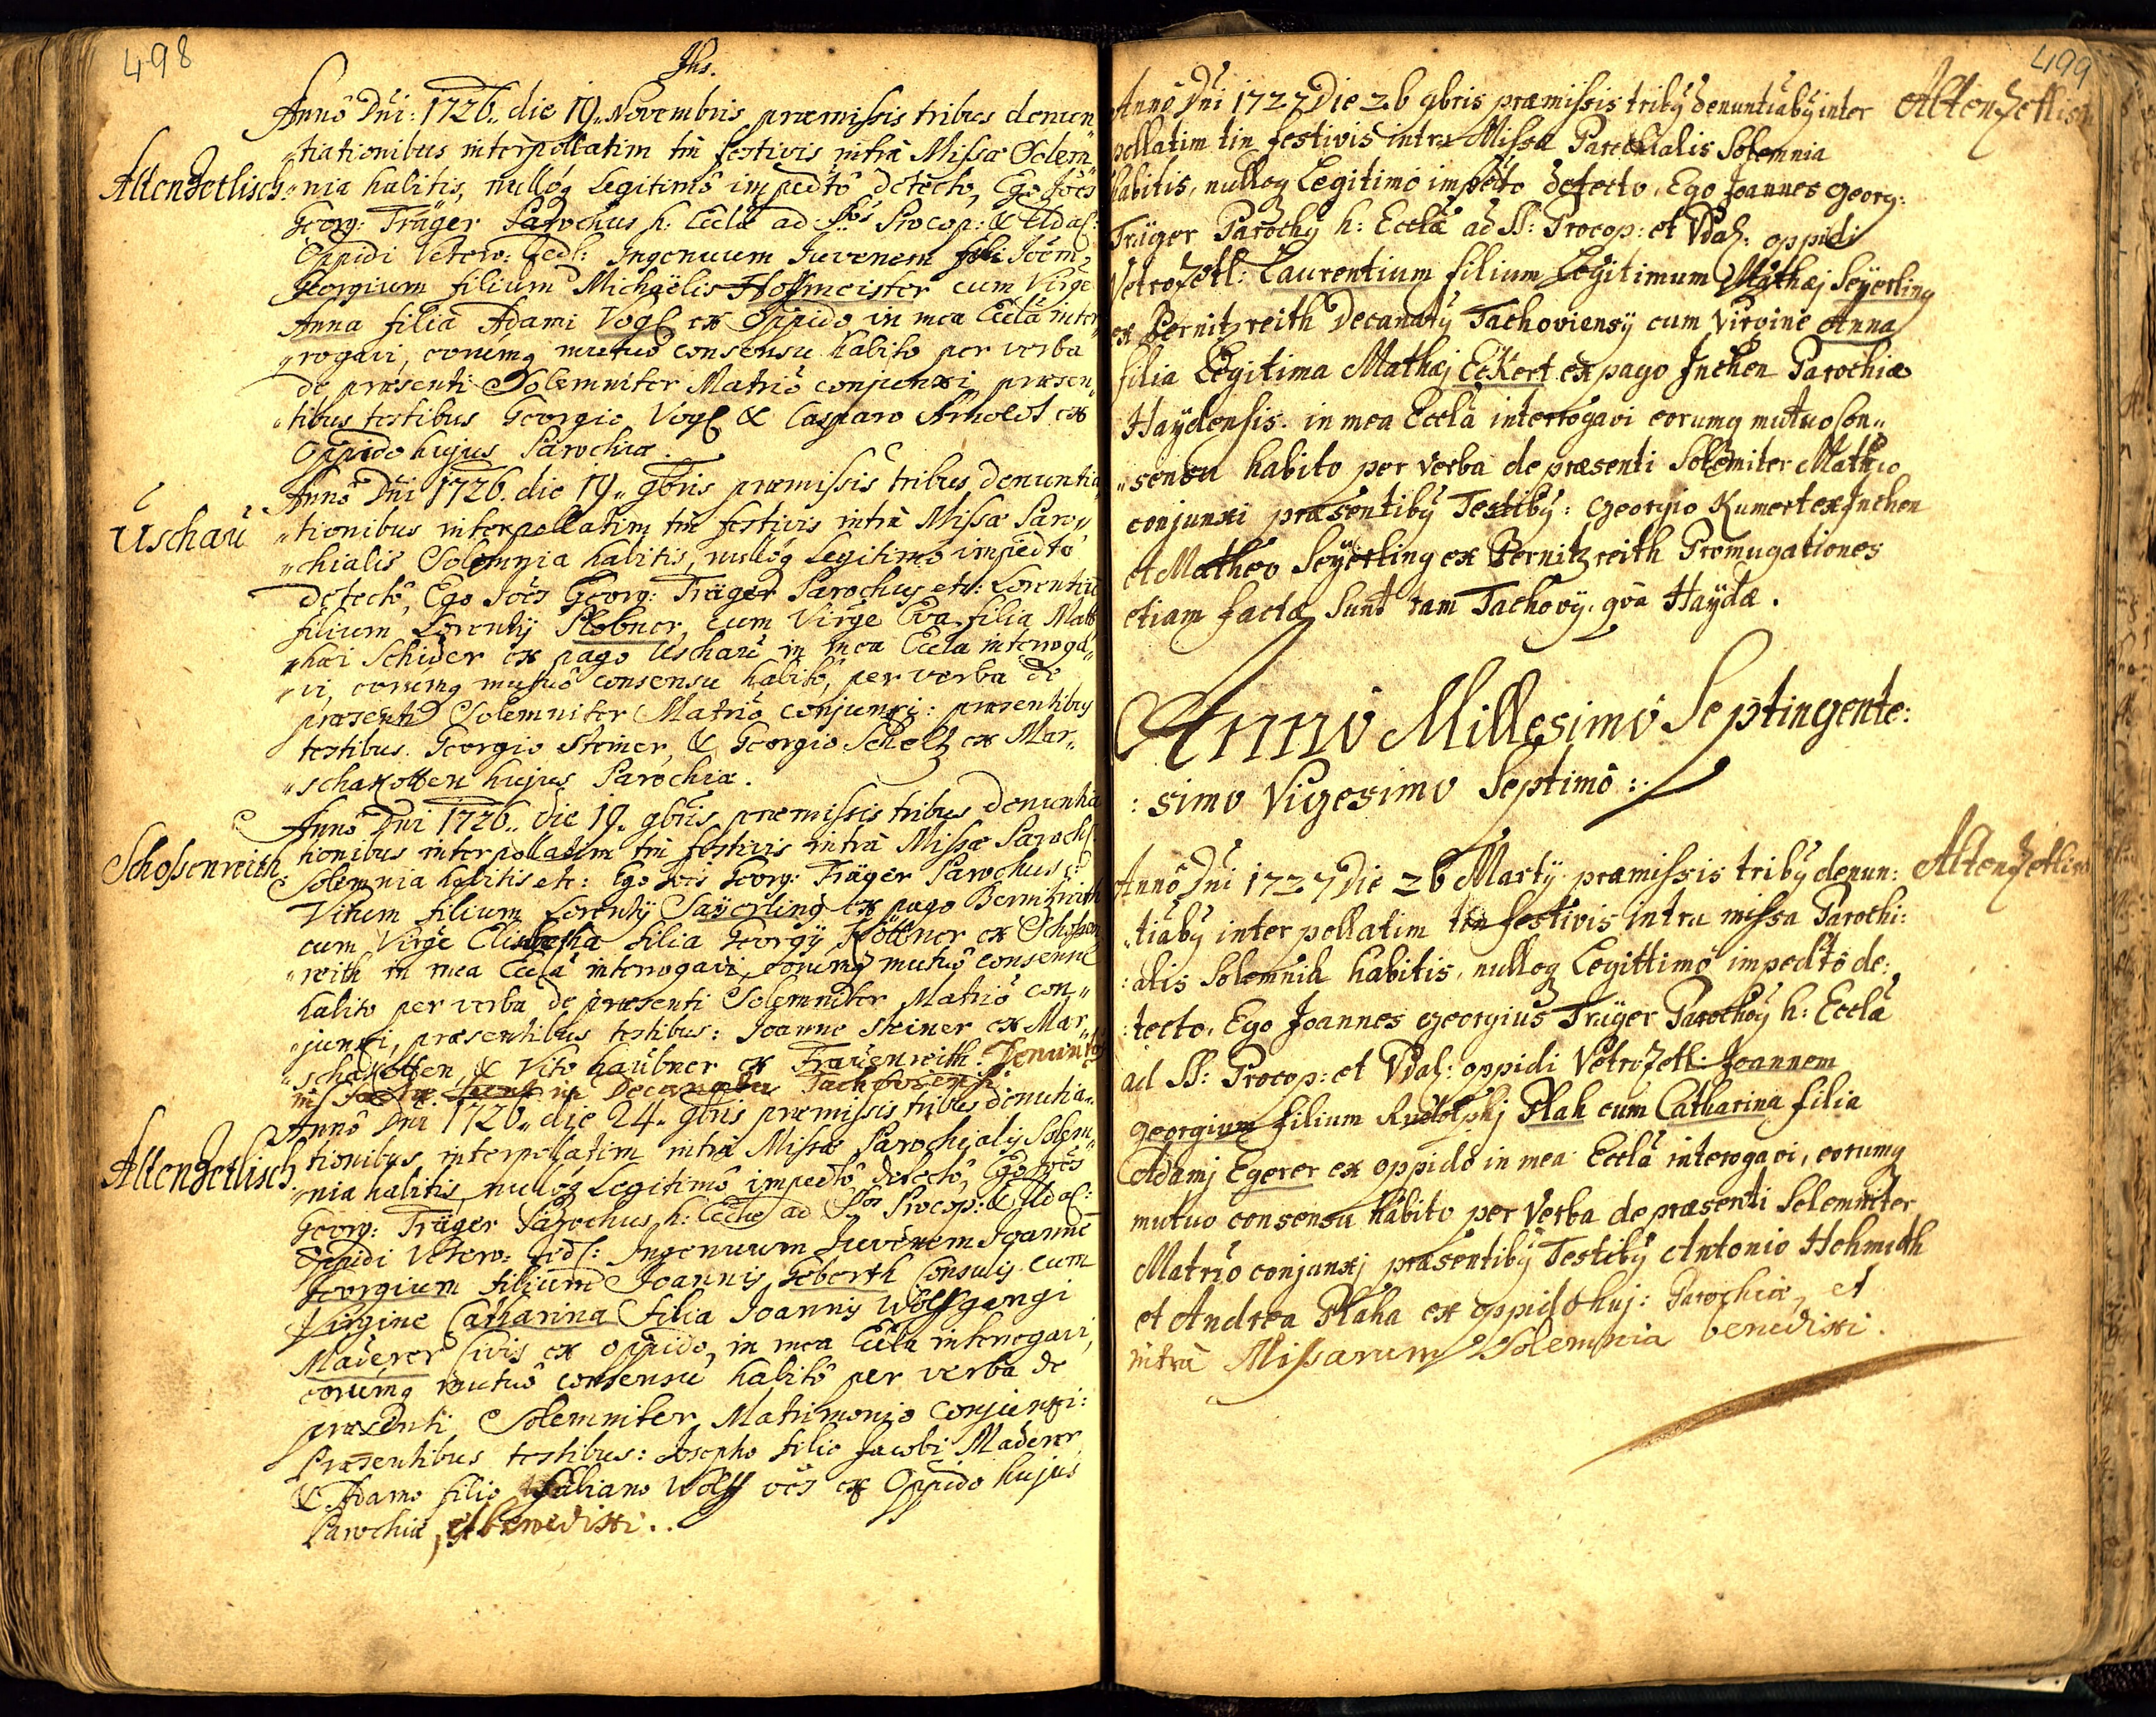 498
Jhs.
Annô Dni: 1726. die 19. Novembris præmissis tribus denun„
„tiationibus interpollatim tm̄ festivis intrà Missæ Solem„
Altenzetlisch. „nia habitis, nullóq Legitimô impedtô detecto, Ego Joēs
Georg: Träger Parochus h: Eccłæ ad SSos Procop: & Udal:
Oppidi Vetero: Zedl: Ingenuum Juvenem Joēm
Georgium filium Michaëlis Hoffmeister cum Virge
Anna filia Adami Vogl ex Oppido in mea Eccłâ inter„
„rogavi, eorumq mutuô consensu habito per verba
de præsenti Solemniter Matriô conjunxi, præsen„
„tibus testibus Georgio Vogl & Casparo Arnoldt ex
Oppido hujus Parochiæ.
Annô Dni 1726. die 19. 9bris præmissis tribus denuntia„
Uschaú „tionibus interpollatim tm̄ festivis intrà Missæ Paro„
„chialis Solemnia habitis, nullóq Legitimô impedtô
detectô, Ego Joēs Georg: Träger Parochus etc: Lorentium
filium Lorentÿ Plobner, cum Virge Eva filia Matt„
„hæi Schider ex pago Uschaú in mea Eccła interroga„
„vi, eorumq mutuô consensu habitô, per verba de
præsenti Solemniter Matriô conjunxi: præsentibus
testibus. Georgio Steiner, & Georgio Scheltz ex Mar„
„schakotten hujus Parochiæ.
Annô Dni 1726. die 19. 9bris præmissis tribus denuntia
Schossenreith. tionibus interpollatim tm̄ festivis intrà Missæ Paroch:
Solemnia habitis etc: Ego Joēs Georg: Träger Parochus etc
Vitum filium Lorentÿ Saÿerling ex pago Bernitzreith
cum Virge Elisabetha filia Georgÿ Köttner ex Schossen
„reith in mea Eccłâ interrogavi, eorumq mutuô consensu
habito per verba de præsenti Solemniter Matriô con„
„junxi, præsentibus testibus: Joanne Steiner ex Mar„
„schakotten, & Vitô Haübner ex Fraüenreith. Denuntia
factæ sunt in Decanatu Tachoviensi
Annô Dni 1726. die 24. 9bris præmissis tribus denutia„
Altenzetlisch. tionibus interpollatim intrà Missæ Parochialis Solem„
„nia habitis, nullóq Legitimô impedtô detectô, Ego Joēs
Georg: Träger Parochus h: Eccłæ ad SSos Procop: & Udal:
Oppidi Vetero: Zedl: Ingenuum Juvenem Joannē
Georgium filium Joannis Geberth Consulis cum
Virgine Catharina filia Joannis Wolffgangi
Maderer Civis ex oppido, in mea Eccła interrogavi,
eorumq mutuô consensu habitô per verba de
præsenti Solemniter Matrimonio Conjunxi:
Præsentibus testibus: Josepho filio Jacobi Maderer
& Adamo filio Juliano Wolff oēs ex Oppido hujus
Parochiæ, et benedixi..
499
Annô Dni 1727 Die 26 9bris præmissis tribÿ denuntiabÿ inter Altenzetlisch
pollatim tm̄ festivis intra Missæ Parochialis Solemnia
habitis, nulloq Legitimô impedto detecto, Ego Joannes Georg:
Träger Parochÿ h: Eccłæ ad SS: Procop: et Vdal: oppidi
Vetrozetl: Laurentium filium Legitimum Mathæj Seÿerling
ex Pernitzreith Decanatÿ Tachoviensÿ cum Virgine Anna
filia Legitima Mathæj Eckert ex pago Inchen Parochiæ
Haÿdensis. in mea Eccłâ interrogavi eorumq mutuo Con„
„sensu habito per verba de præsenti Solemiter Matrio
conjunxi præsentibÿ Testibÿ: Georgio Kumert ex Inchen
et Matheo Seÿerling ex Pernitzreith Promugationes
etiam factæ sunt tam Tachovÿ, qvâ Haÿdæ.
Annô Millesimô Septingente:
: simo Vigesimo Septimô :.
Annô Dni 1727 Die 26 Martÿ præmissis tribÿ denun: Altenzetlisch
:tiabÿ inter pollatim tm̄ festivis intra missæ Parochi:
:alis Solemnia habitis, nulloq Legittimô impedtô de:
:tecto, Ego Joannes Georgius Träger Parochÿ h: Eccłâ
ad SS: Procop: et Vdal: oppidi Vetrozetl: Joannem
Georgium filium Rudolphj Plah cum Catharina filia
Adamj Egerer ex oppidô in mea Eccłâ interogavi, eorumq
mutuo consensu habito per Verba de præsenti Solemniter
Matrio conjunxj præsentibÿ Testibÿ Antonio Hehmith
et Andrea Plaha ex oppido huj: Parochiæ, et
intrà Missarum Solemnia benedixi.